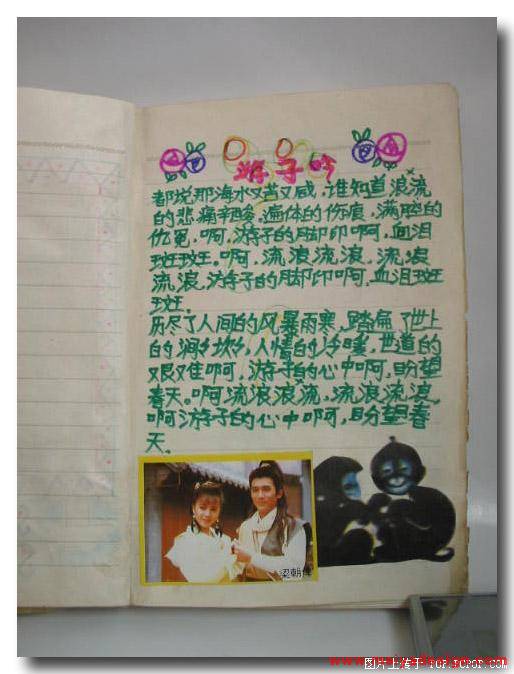 游子吟
都说那海水又苦又咸，谁知道浪流
的悲痛辛酸，遍体的伤痕，满腔的
仇冤，啊，游子的脚印啊，血泪
斑斑。啊，流浪流浪，流浪
流浪，游子的脚印啊，血泪斑
斑。
历尽了人间的风暴雨寒，踏扁了世上
的沟沟坎坎，人情的冷暖，世道的
艰难啊，游子的心中啊，盼望
春天。啊流浪浪流，流浪流浪
啊游子的心中啊，盼望春
天。
梁朝伟
图片上传于